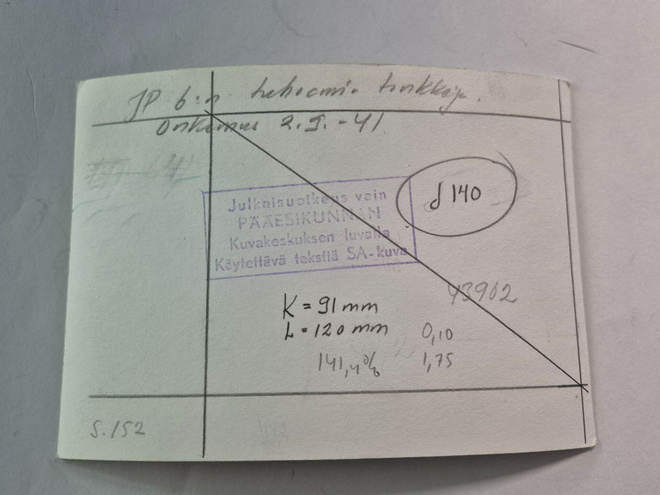 JP 6:n tekoomia
Onkamus 2.I.-41.
d 140
Julkaisuoikeus vain
PÄÄESIKUNNAN
Kuvakeskuksen luvalla
Käytettävä tekstiä SA-kuva
43902
K = 91 mm
L = 120 mm 0,10
141,4% 1,75
S.152